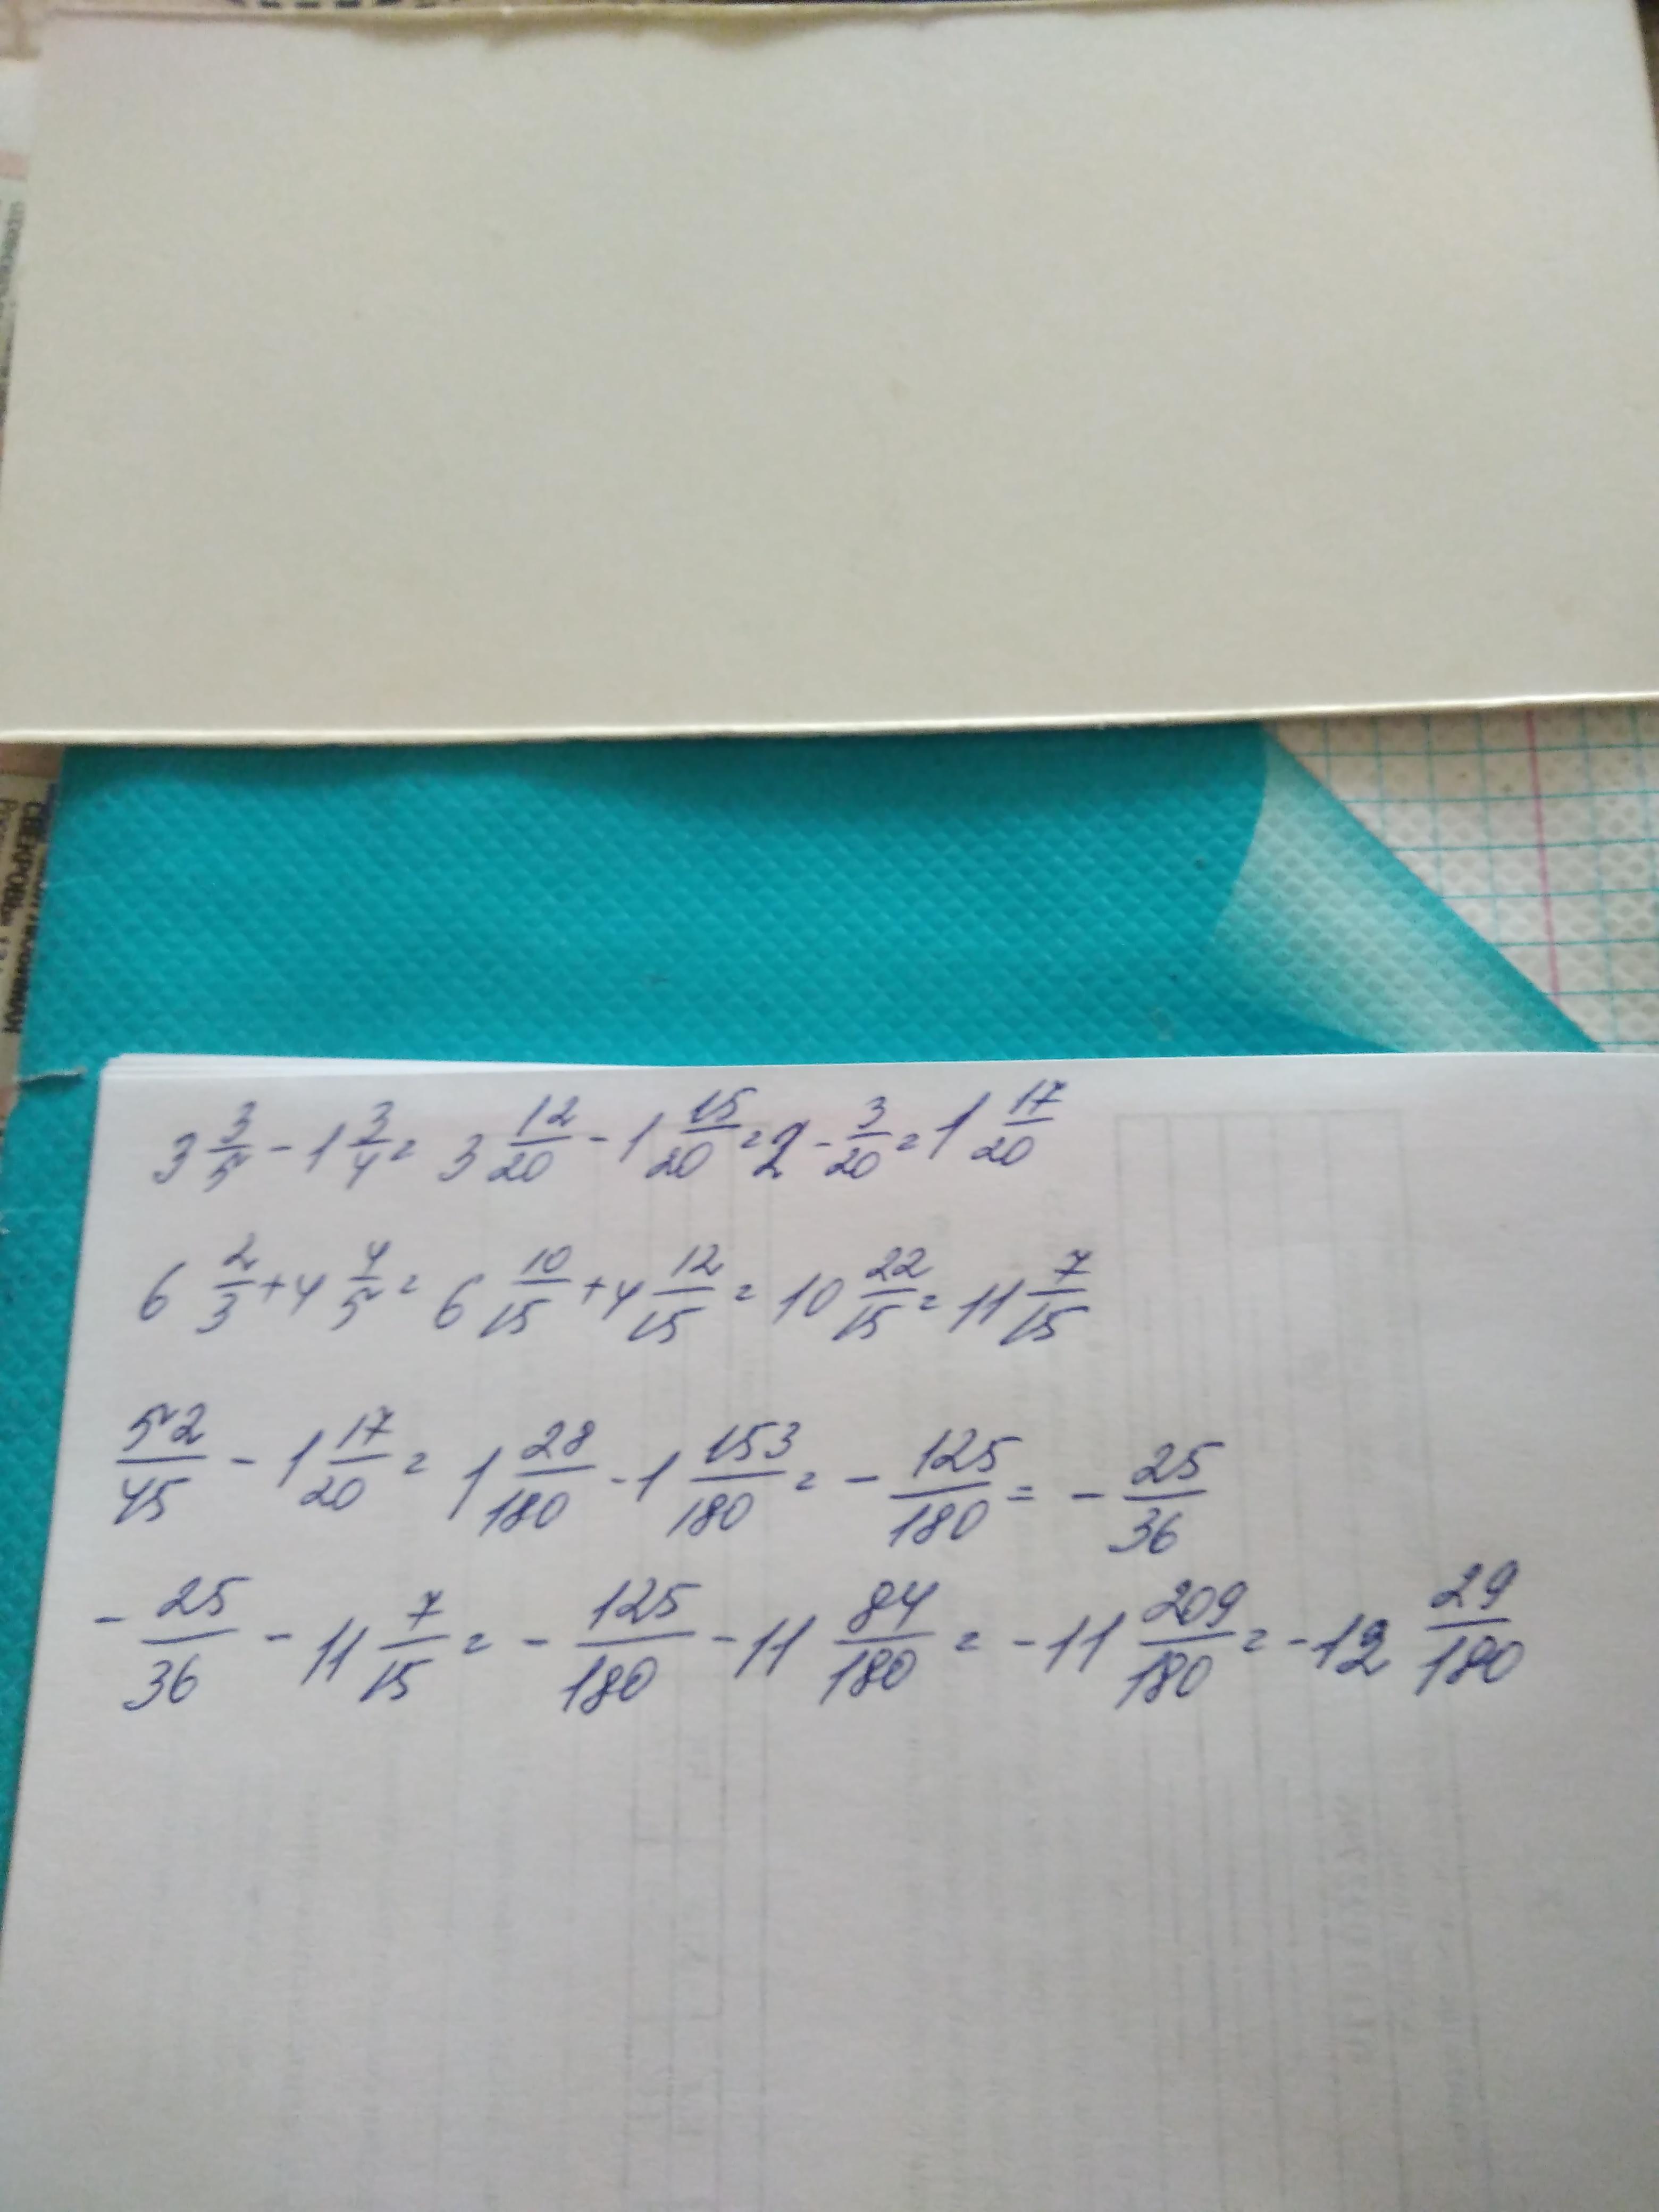 3 3/5 - 1 3/4 = 3 12/20 - 1 15/20 = 2 - 3/20 = 1 17/20
6 2/3 + 4 4/5 = 6 10/15 + 4 12/15 = 10 22/15 = 11 7/15
52/45 - 1 17/20 = 1 28/180 - 1 153/180 = - 125/180 = - 25/36
- 25/36 - 11 7/15 = - 125/180 - 11 84/180 = - 11 209/180 = - 12 29/180